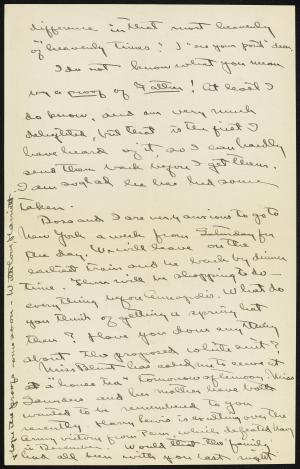 difference in that most heavenly
of heavenly times! I "see your point" dear.
I do not know what you mean
by a proof of Father! At least I
do know, and am very much
delighted, but that is the first I
have heard of it, so I can hardly
send them back before I get them.
I am so glad he has had some
taken.
Dora and I are very anxious to go to
New York a week from Saturday for
the day. We will leave on the
earliest train and be back by dinner
time. There will be shopping to do –
everything before Annapolis. What do
you think of getting a spring hat
then? Have you done anything
about the proposed white suit?
Miss Blunt has asked me to come at
a "house tea" tomorrow afternoon. Miss
and her mother have both
wanted to be remembered to you
recently. Harry Lewis is exulting over the
Army victory from Penn, which defeated Navy
in December. Would that the family
had all been with you last night
the proofs soon – With love,